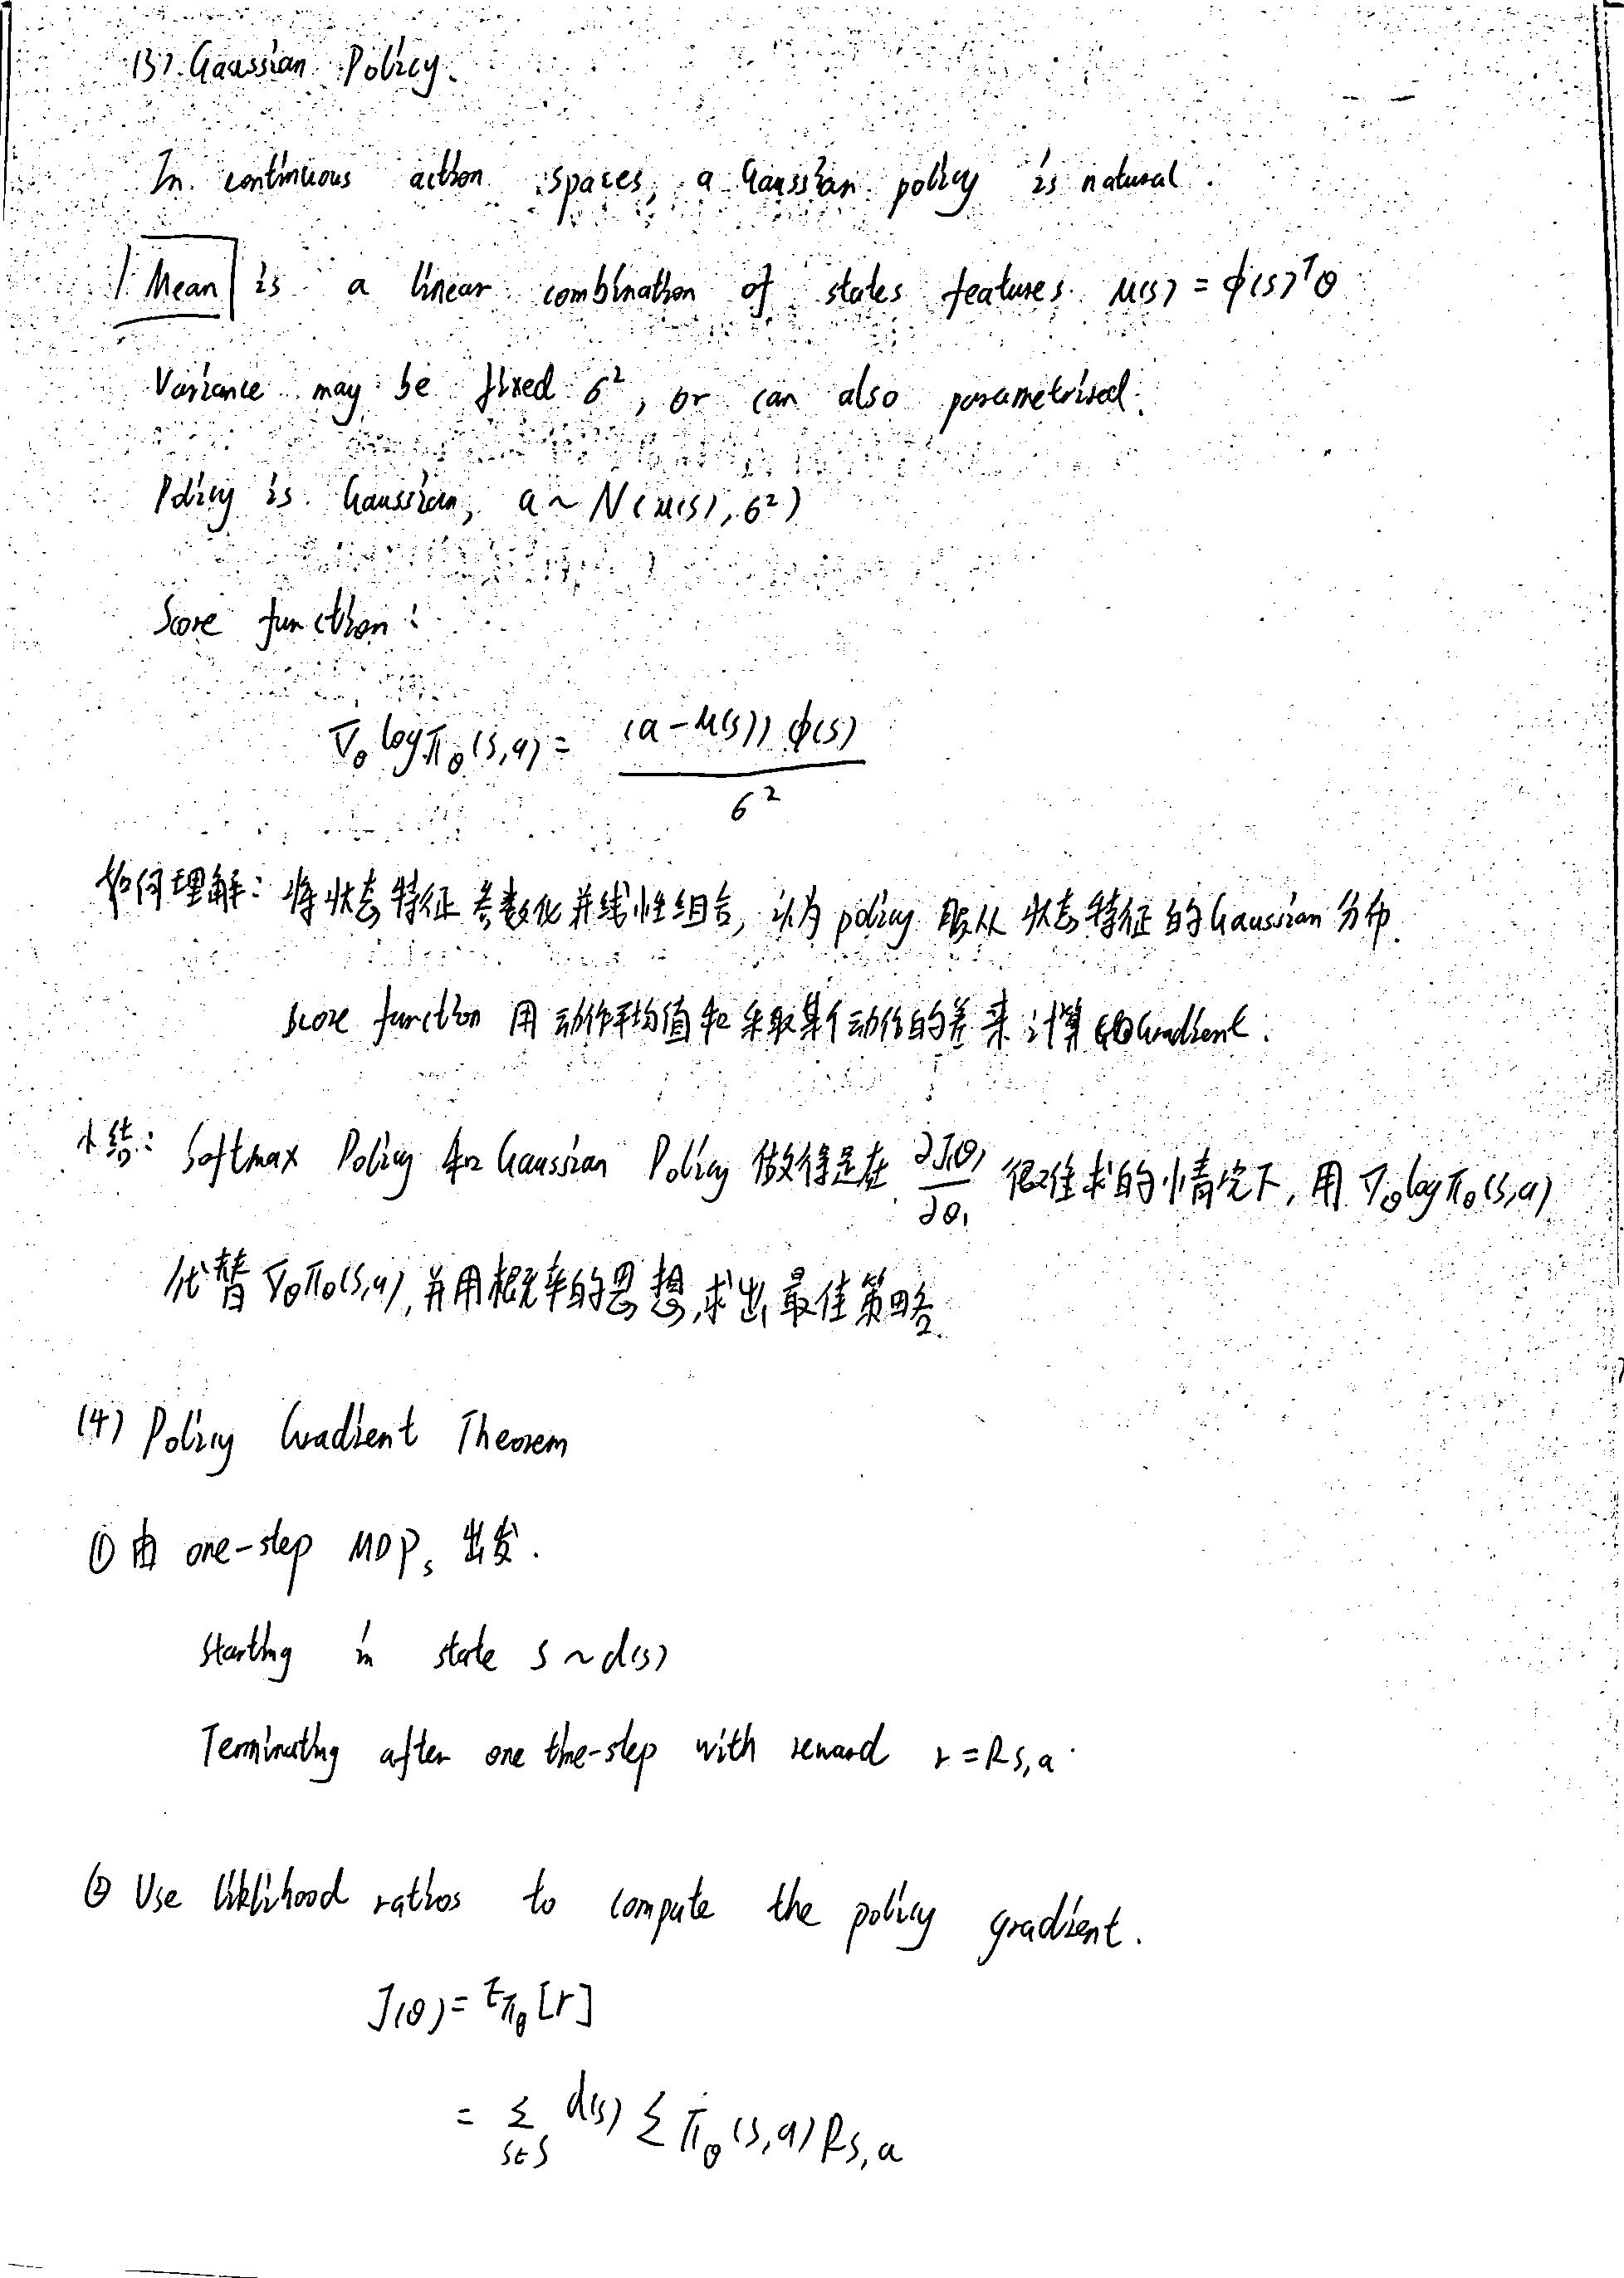 (3) Gaussian Policy.
In continuous action spaces, a Gaussian policy is natural.
Mean is a linear combination of states features. μ(s) = φ(s)ᵀθ
Variance may be fixed σ², or can also parametrised.
Policy is Gaussian, a ~ N(μ(s), σ²)
Score function:
∇θ log πθ(s,a) = (a-μ(s)) φ(s) / σ²
如何理解: 将状态特征参数化并线性组合, 认为 policy 服从状态特征的 Gaussian 分布.
score function 用动作平均值和采取某个动作的差来计算 Gradient.
小结: Softmax Policy 和 Gaussian Policy 做得是在 ∂J(θ)/∂θ₁ 很难求的情况下, 用 ∇θ log πθ(s,a)
代替 ∇θπθ(s,a), 并用概率的思想, 求出最佳策略.
(4) Policy Gradient Theorem
① 由 one-step MDPs 出发.
Starting in state s ~ d(s)
Terminating after one time-step with reward r = Rs,a.
② Use liklihood ratios to compute the policy gradient.
J(θ) = Eπθ[r]
= Σ s∈S d(s) Σ πθ(s,a) Rs,a